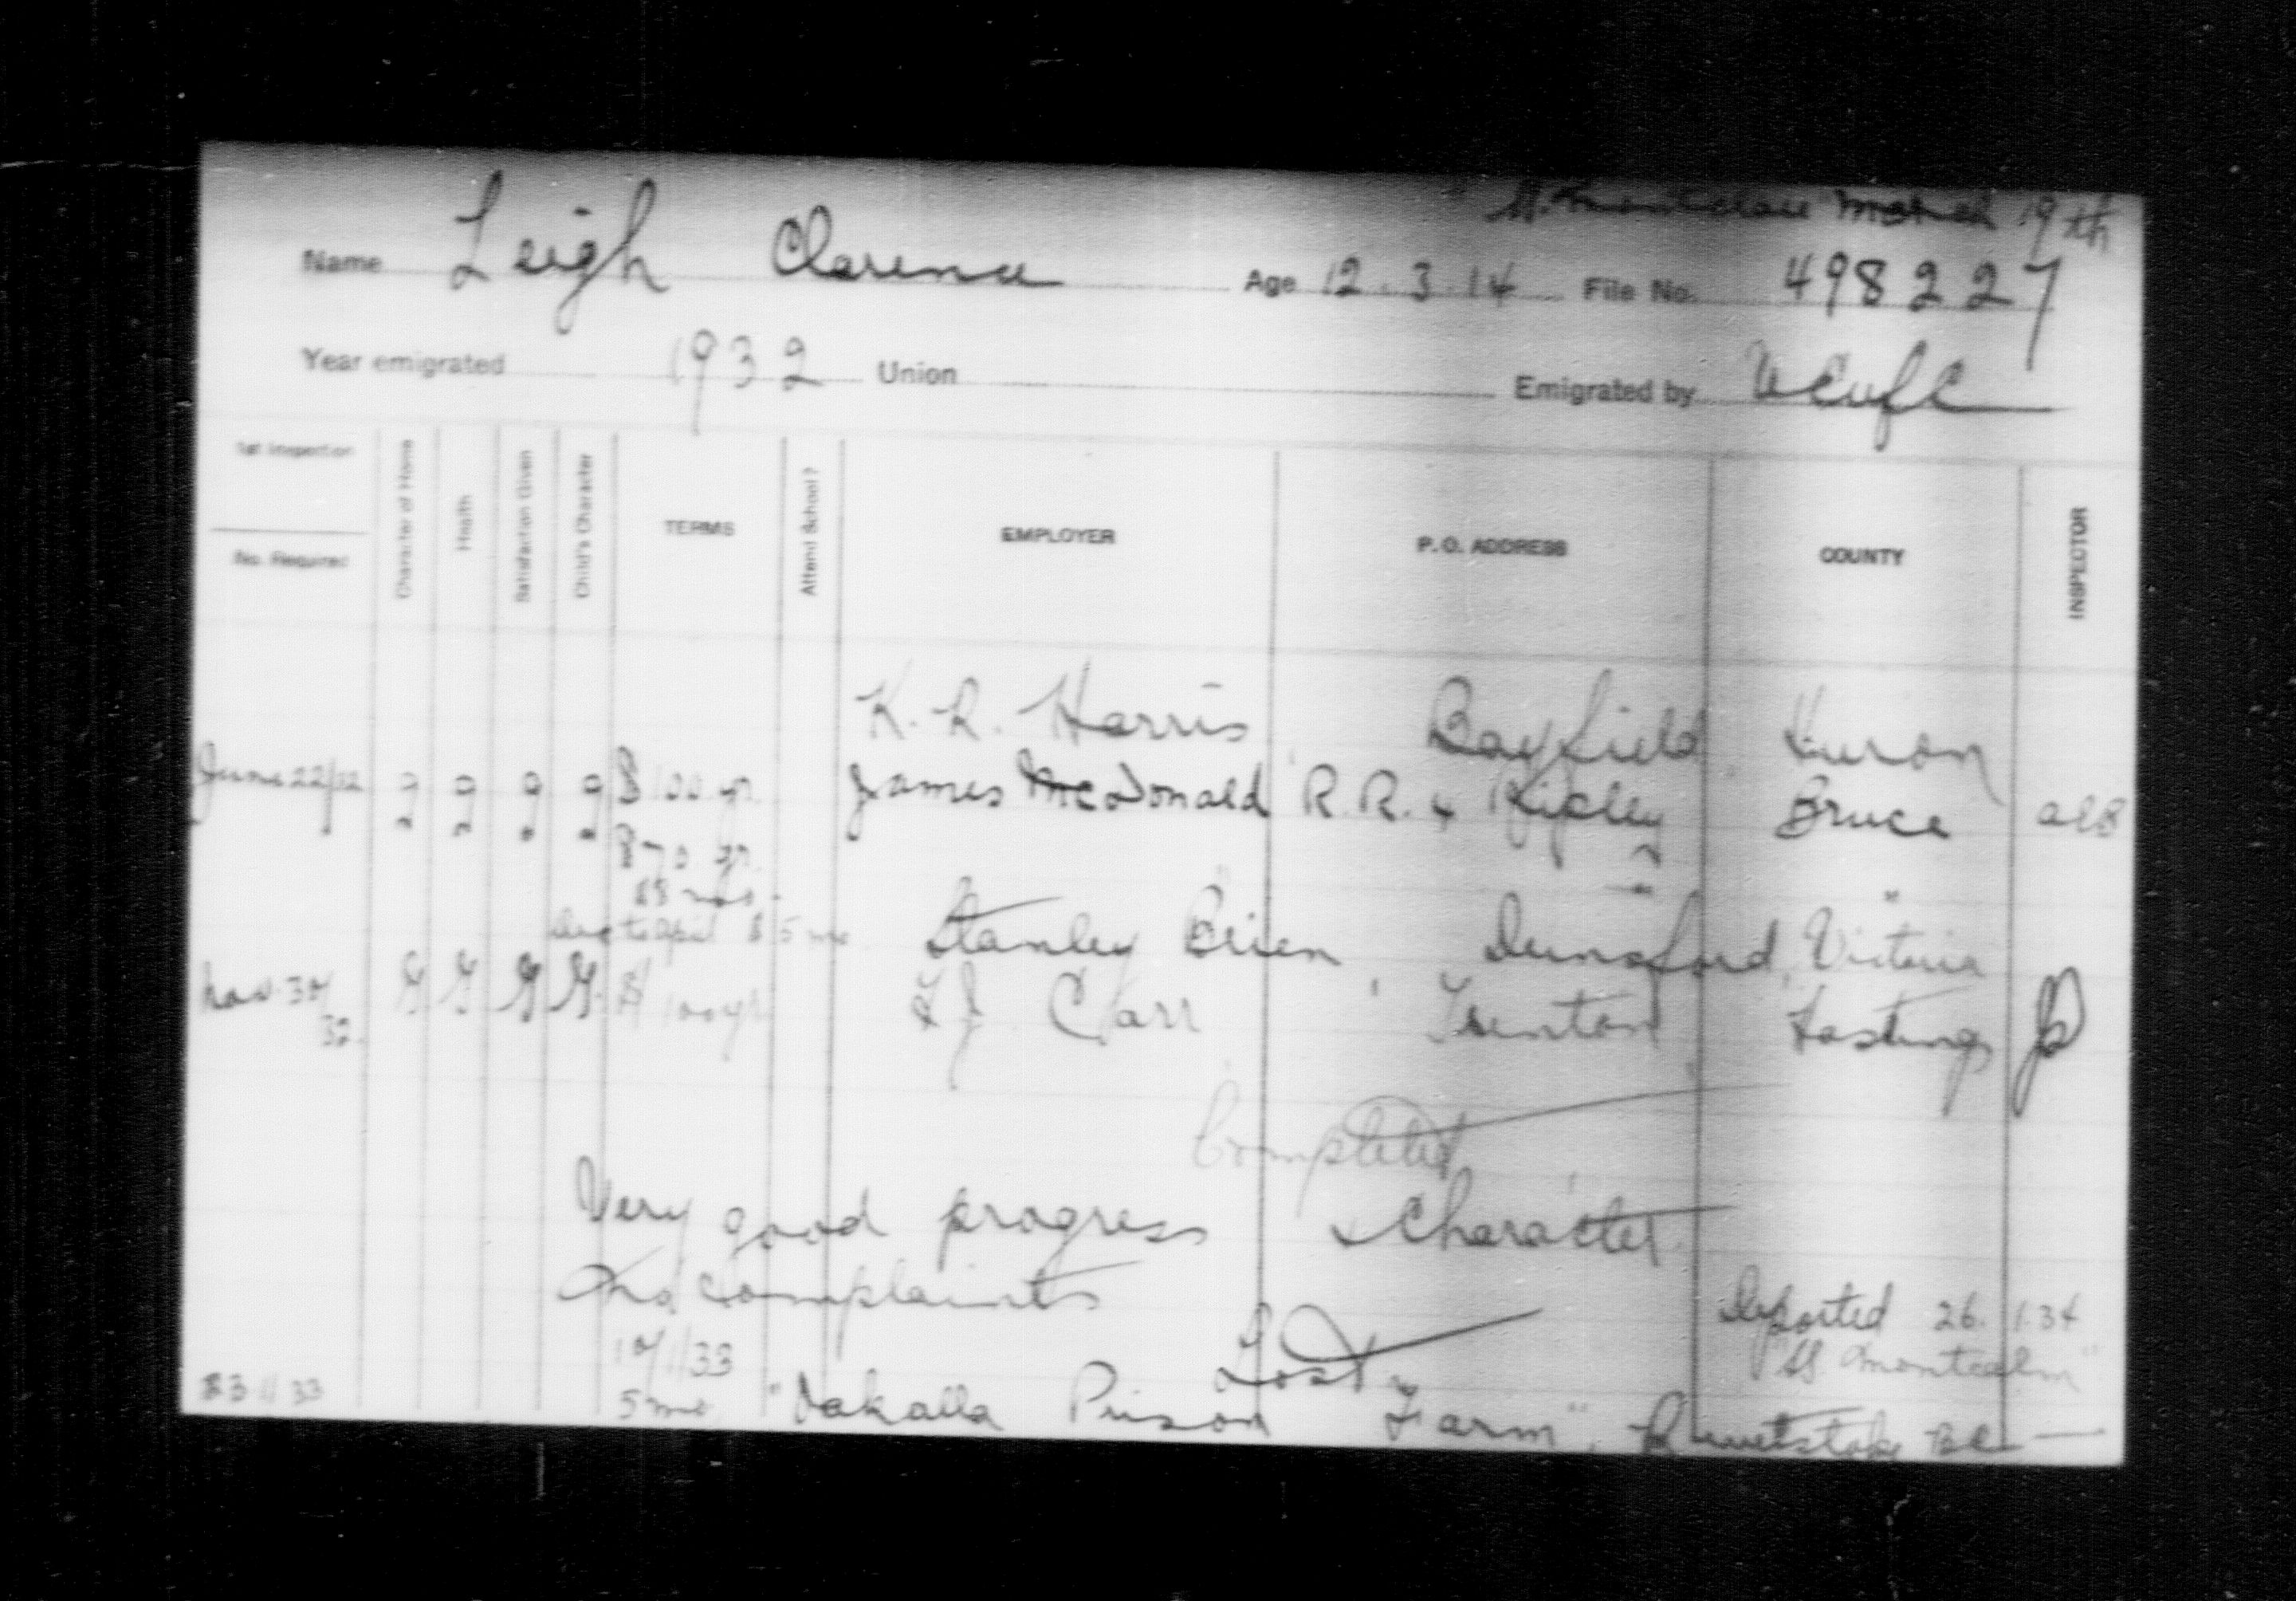 March 19th
Name Leigh Clarence Age 12.3.14 File No. 498227
Year emigrated 1932 Union Emigrated by
1st Inspection
No. Required
Character of Home
Health
Satisfaction Given
Child's Character
TERMS
Attend School?
EMPLOYER
P. O. ADDRESS
COUNTY
INSPECTOR
K. R. Harris Bayfield Huron
June 22/32 g g g g $100 yr. James McDonald R.R. Ripley Bruce
$70 yr. "
to April $5 mo Stanley Brien, Dunsford, Victoria
Nov. 30/32 G G G G $100 yr Carr Trenton Hastings
Completed
Very good progress & Character.
No complaints
Deported 26.1.34
10/1/33 Lost "SS. Montcalm"
23 11 33 5 mo "Oakalla Prison Farm", B.C.